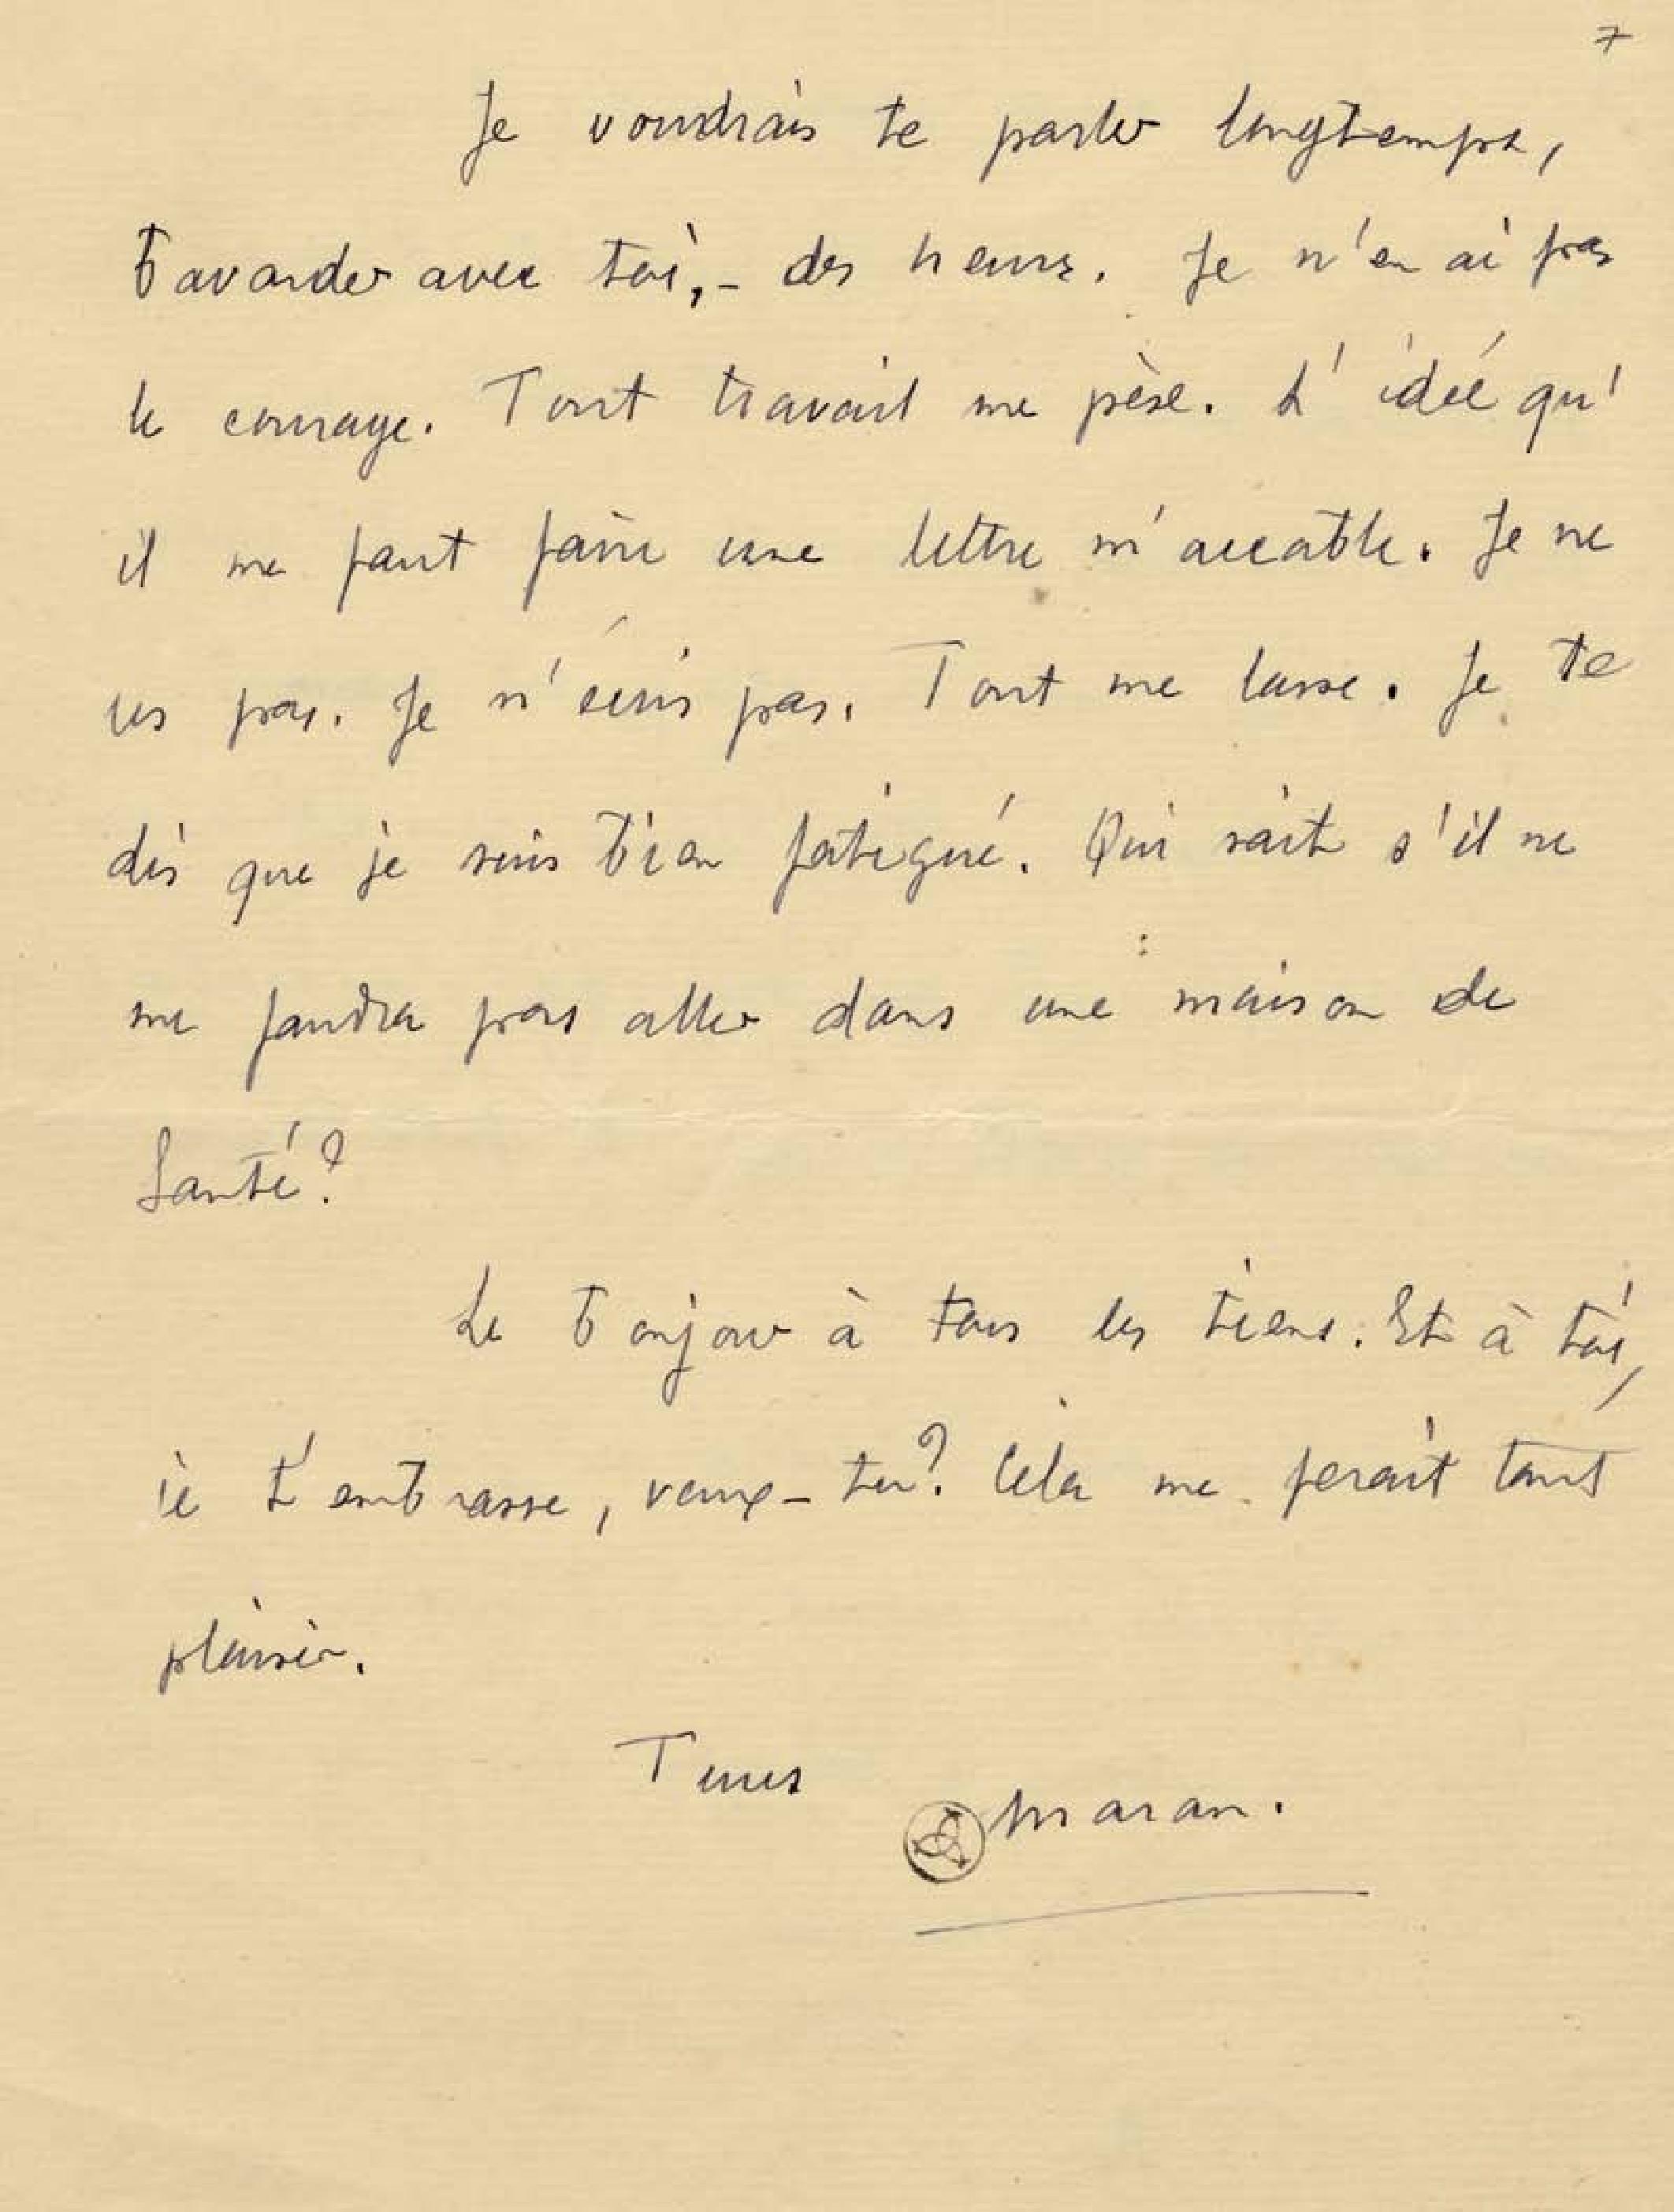 7
Je voudrais te parler longtemps,
bavarder avec toi, - des heures. Je n'en ai pas
le courage. Tout travail me pèse. L'idée qu'
il me faut faire une lettre m'accable. Je ne
lis pas. Je n'écris pas. Tout me lasse. Je te
dis que je suis bien fatigué. Qui sait s'il ne
me faudra pas aller dans une maison de
Santé?
Le bonjour à tous les tiens. Et à toi,
je t'embrasse, veux-tu? Cela me ferait tant
plaisir.
Maran.